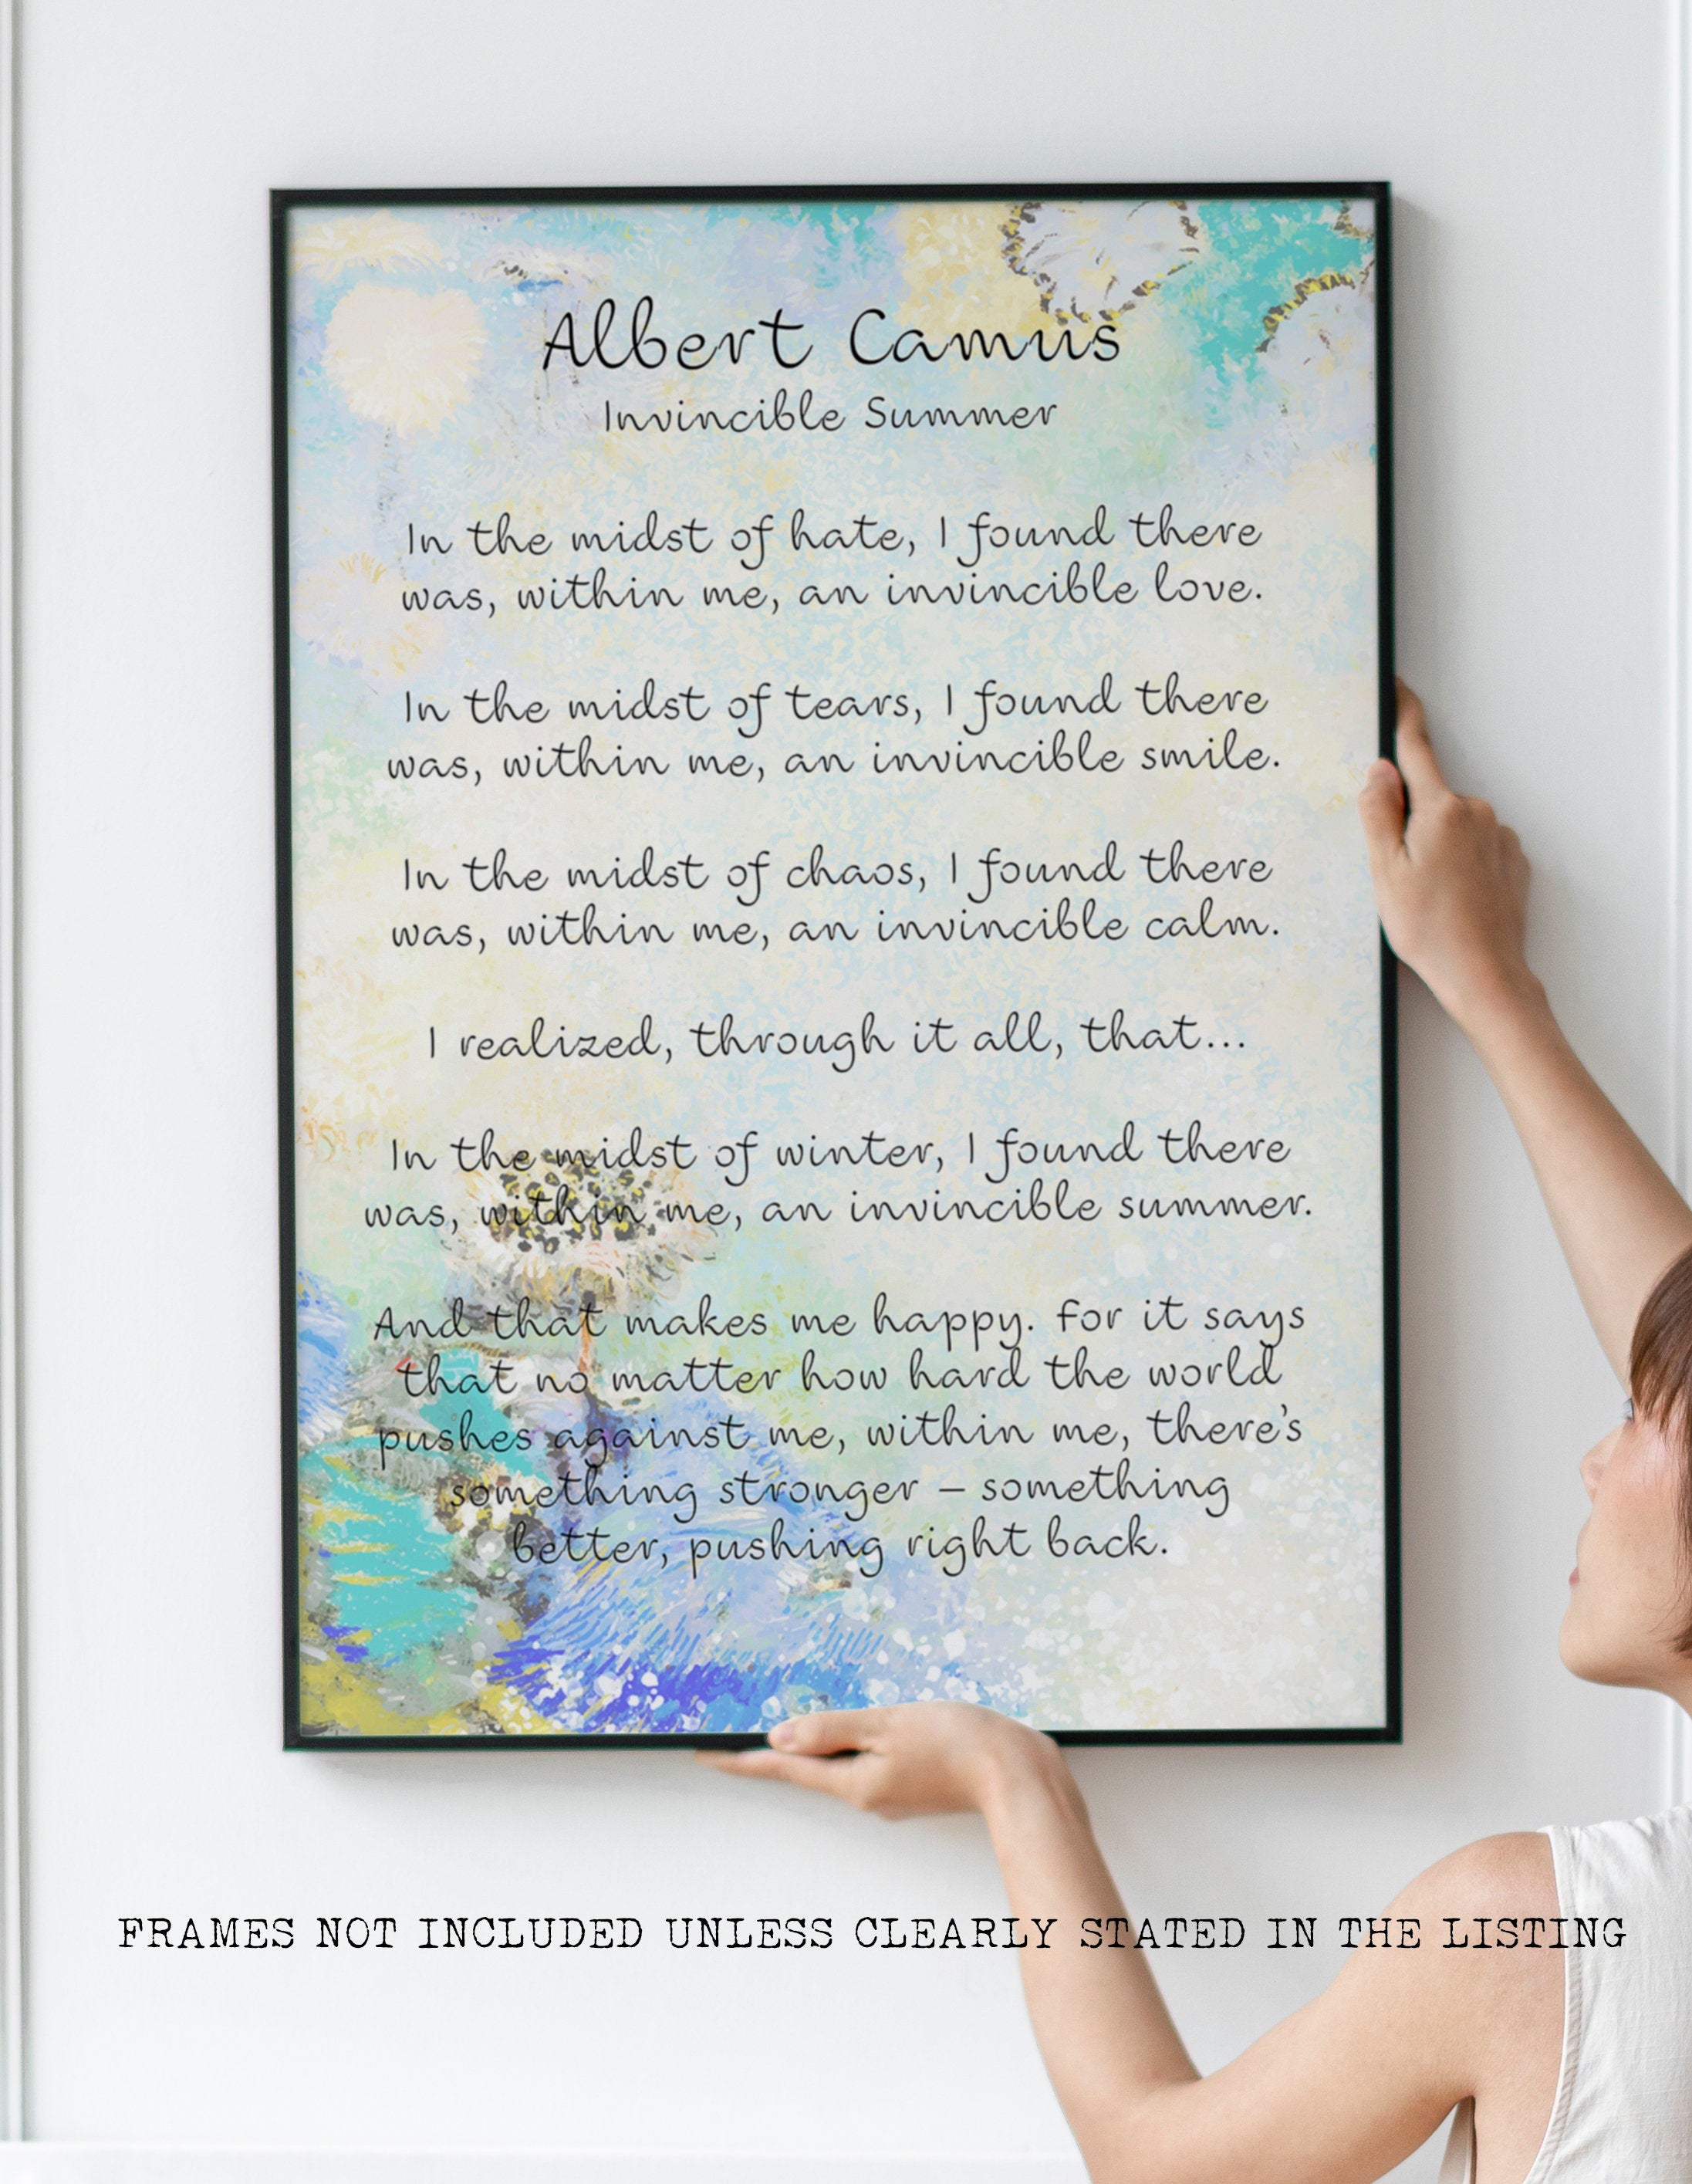 Albert Camus
Invincible Summer
In the midst of hate, I found there
was, within me, an invincible love.
In the midst of tears, I found there
was, within me, an invincible smile.
In the midst of chaos, I found there
was, within me, an invincible calm.
I realized, through it all, that...
In the midst of winter, I found there
was, within me, an invincible summer.
And that makes me happy. For it says
that no matter how hard the world
pushes against me, within me, there's
something stronger – something
better, pushing right back.
FRAMES NOT INCLUDED UNLESS CLEARLY STATED IN THE LISTING